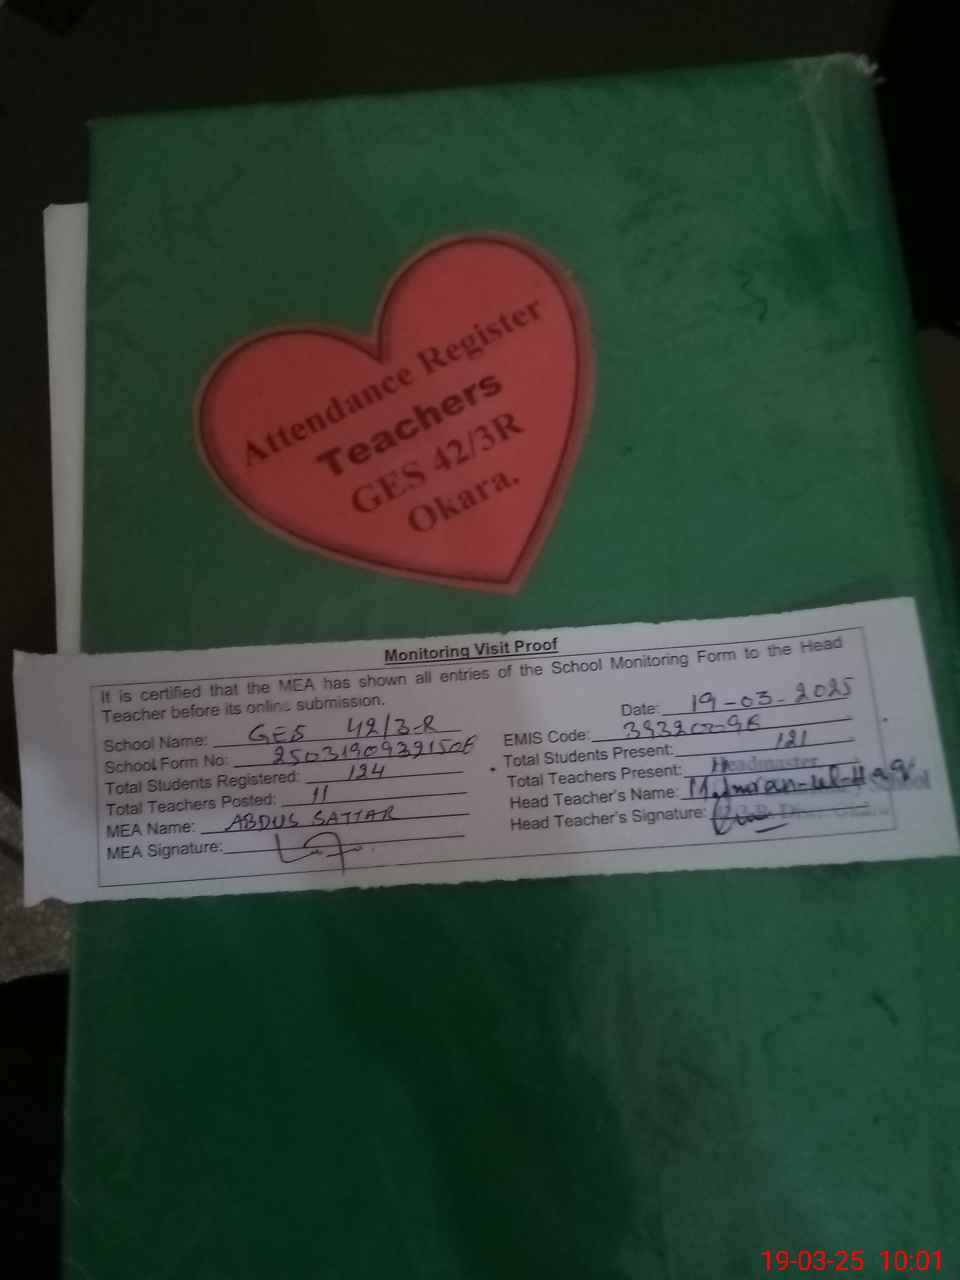 Attendance Register
Teachers
GES 42/3R
Okara.
Monitoring Visit Proof
It is certified that the MEA has shown all entries of the School Monitoring Form to the Head
Teacher before its online submission.
Date: 19-03-2025
School Name: GES 42/3-R
EMIS Code:
School Form No:
Total Students Present: 121
Total Students Registered: 124
Total Teachers Present:
Headmaster
Total Teachers Posted: 11
Head Teacher's Name: M. Imran-ul-Haq
MEA Name: ABDUS SATTAR
Head Teacher's Signature:
MEA Signature:
19-03-25 10:01